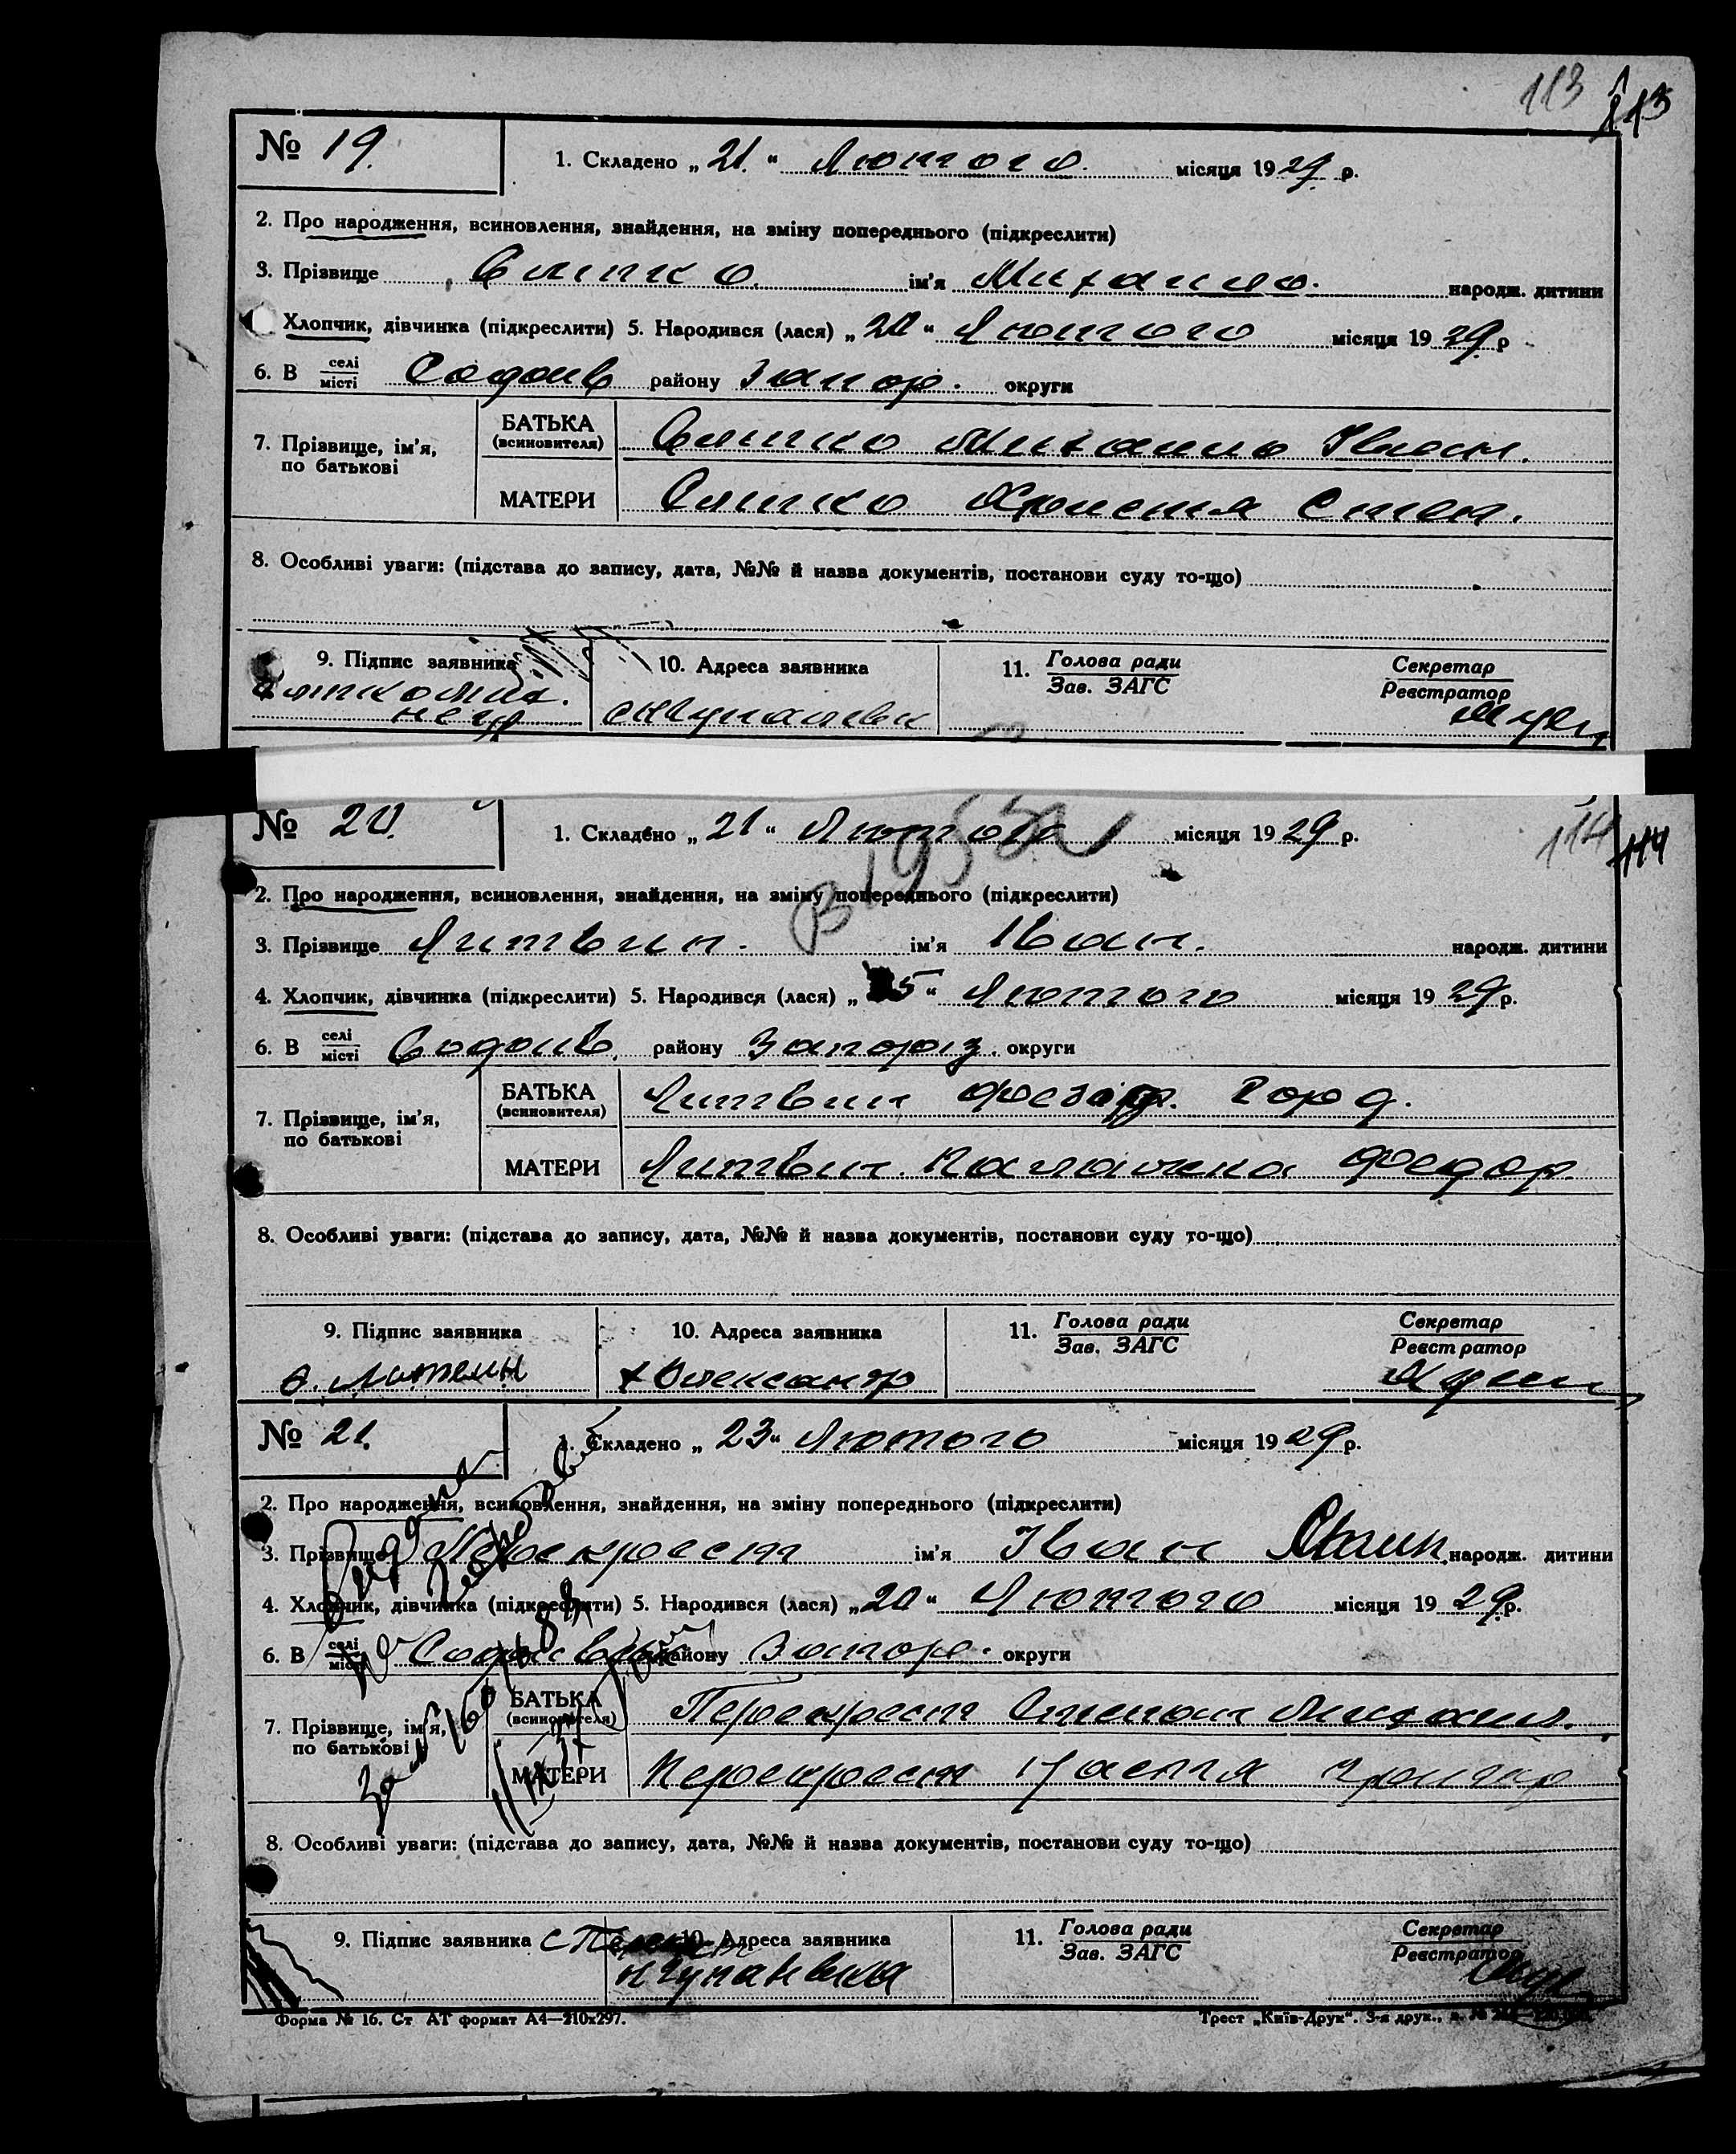 113 113
№ 19. 1. Складено „21.“ Лютого. місяця 1929 р.
2. Про народження, всиновлення, знайдення, на зміну попереднього (підкреслити)
3. Прізвище Сліпко. ім'я Михаило. народж. дитини
Хлопчик, дівчинка (підкреслити) 5. Народився (лася) „20“ Лютого місяця 1929 р
6. В селі місті району Запор. округи
7. Прізвище, ім'я, по батькові
БАТЬКА (всиновителя) Михаило
МАТЕРИ Христя Степ.
8. Особливі уваги: (підстава до запису, дата, №№ й назва документів, постанови суду то-що)
9. Підпис заявника 10. Адреса заявника 11. Голова ради Зав. ЗАГС Секретар Реєстратор
№ 20. 1. Складено „21“ Лютого місяця 1929 р.
114 114
2. Про народження, всиновлення, знайдення, на зміну попереднього (підкреслити)
3. Прізвище Литвин. ім'я Іван. народж. дитини
4. Хлопчик, дівчинка (підкреслити) 5. Народився (лася) „15“ Лютого місяця 1929 р.
6. В селі місті району Запоріз. округи
7. Прізвище, ім'я, по батькові
БАТЬКА (всиновителя) Литвин
МАТЕРИ Литвин Палажка Федор.
8. Особливі уваги: (підстава до запису, дата, №№ й назва документів, постанови суду то-що)
9. Підпис заявника 10. Адреса заявника 11. Голова ради Зав. ЗАГС Секретар Реєстратор
х Олександр
№ 21. 1. Складено „23“ Лютого місяця 1929 р.
2. Про народження, всиновлення, знайдення, на зміну попереднього (підкреслити)
3. Прізвище Перекрест ім'я Іван народж. дитини
4. Хлопчик, дівчинка (підкреслити) 5. Народився (лася) „20“ Лютого місяця 1929 р.
6. В селі місті району Запор. округи
7. Прізвище, ім'я, по батькові
БАТЬКА (всиновителя) Перекрест Степан Михаил.
МАТЕРИ Перекрест Настя
8. Особливі уваги: (підстава до запису, дата, №№ й назва документів, постанови суду то-що)
9. Підпис заявника 10. Адреса заявника 11. Голова ради Зав. ЗАГС Секретар Реєстратор
Форма № 16. Ст АТ формат А4—210x297. Трест „Київ-Друк“. 3-я друк.,